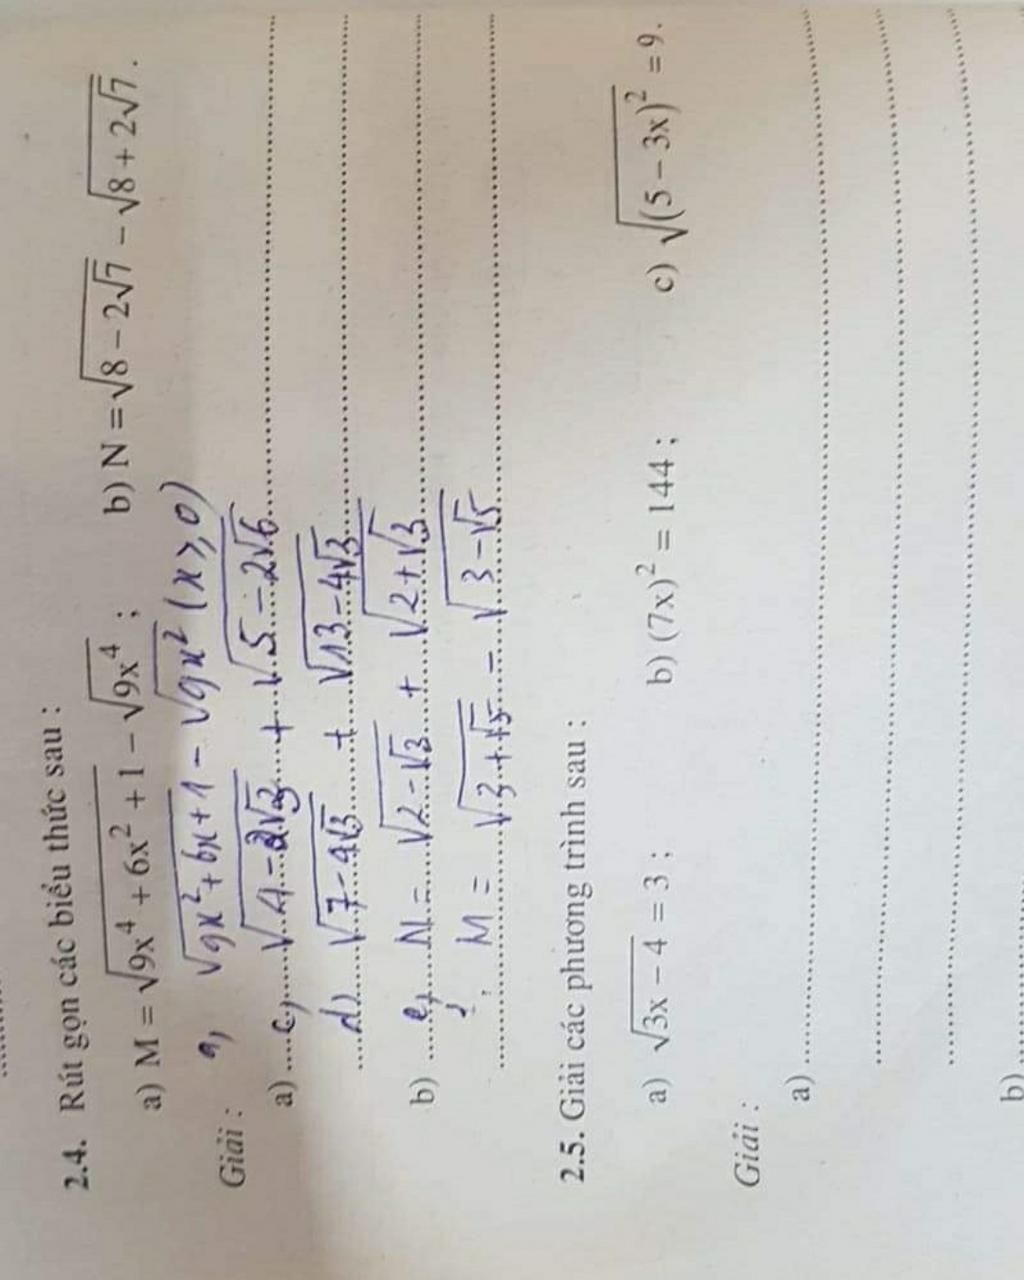 2.4. Rút gọn các biểu thức sau :
a) M = √(9x⁴ + 6x² + 1) − √(9x⁴) ; b) N = √(8 − 2√7) − √(8 + 2√7) .
a, √(9x² + 6x + 1) − √(9x²) (x ⩾ 0)
Giải :
a) c, √(4 − 2√3) + √(5 − 2√6)
d) √(7 − 4√3) + √(13 − 4√3)
b) e, N = √(2 − √3) + √(2 + √3)
M = √(3 + √5) − √(3 − √5)
2.5. Giải các phương trình sau :
a) √(3x − 4) = 3 ; b) (7x)² = 144 ; c) √((5 − 3x)²) = 9.
Giải :
a)
b)